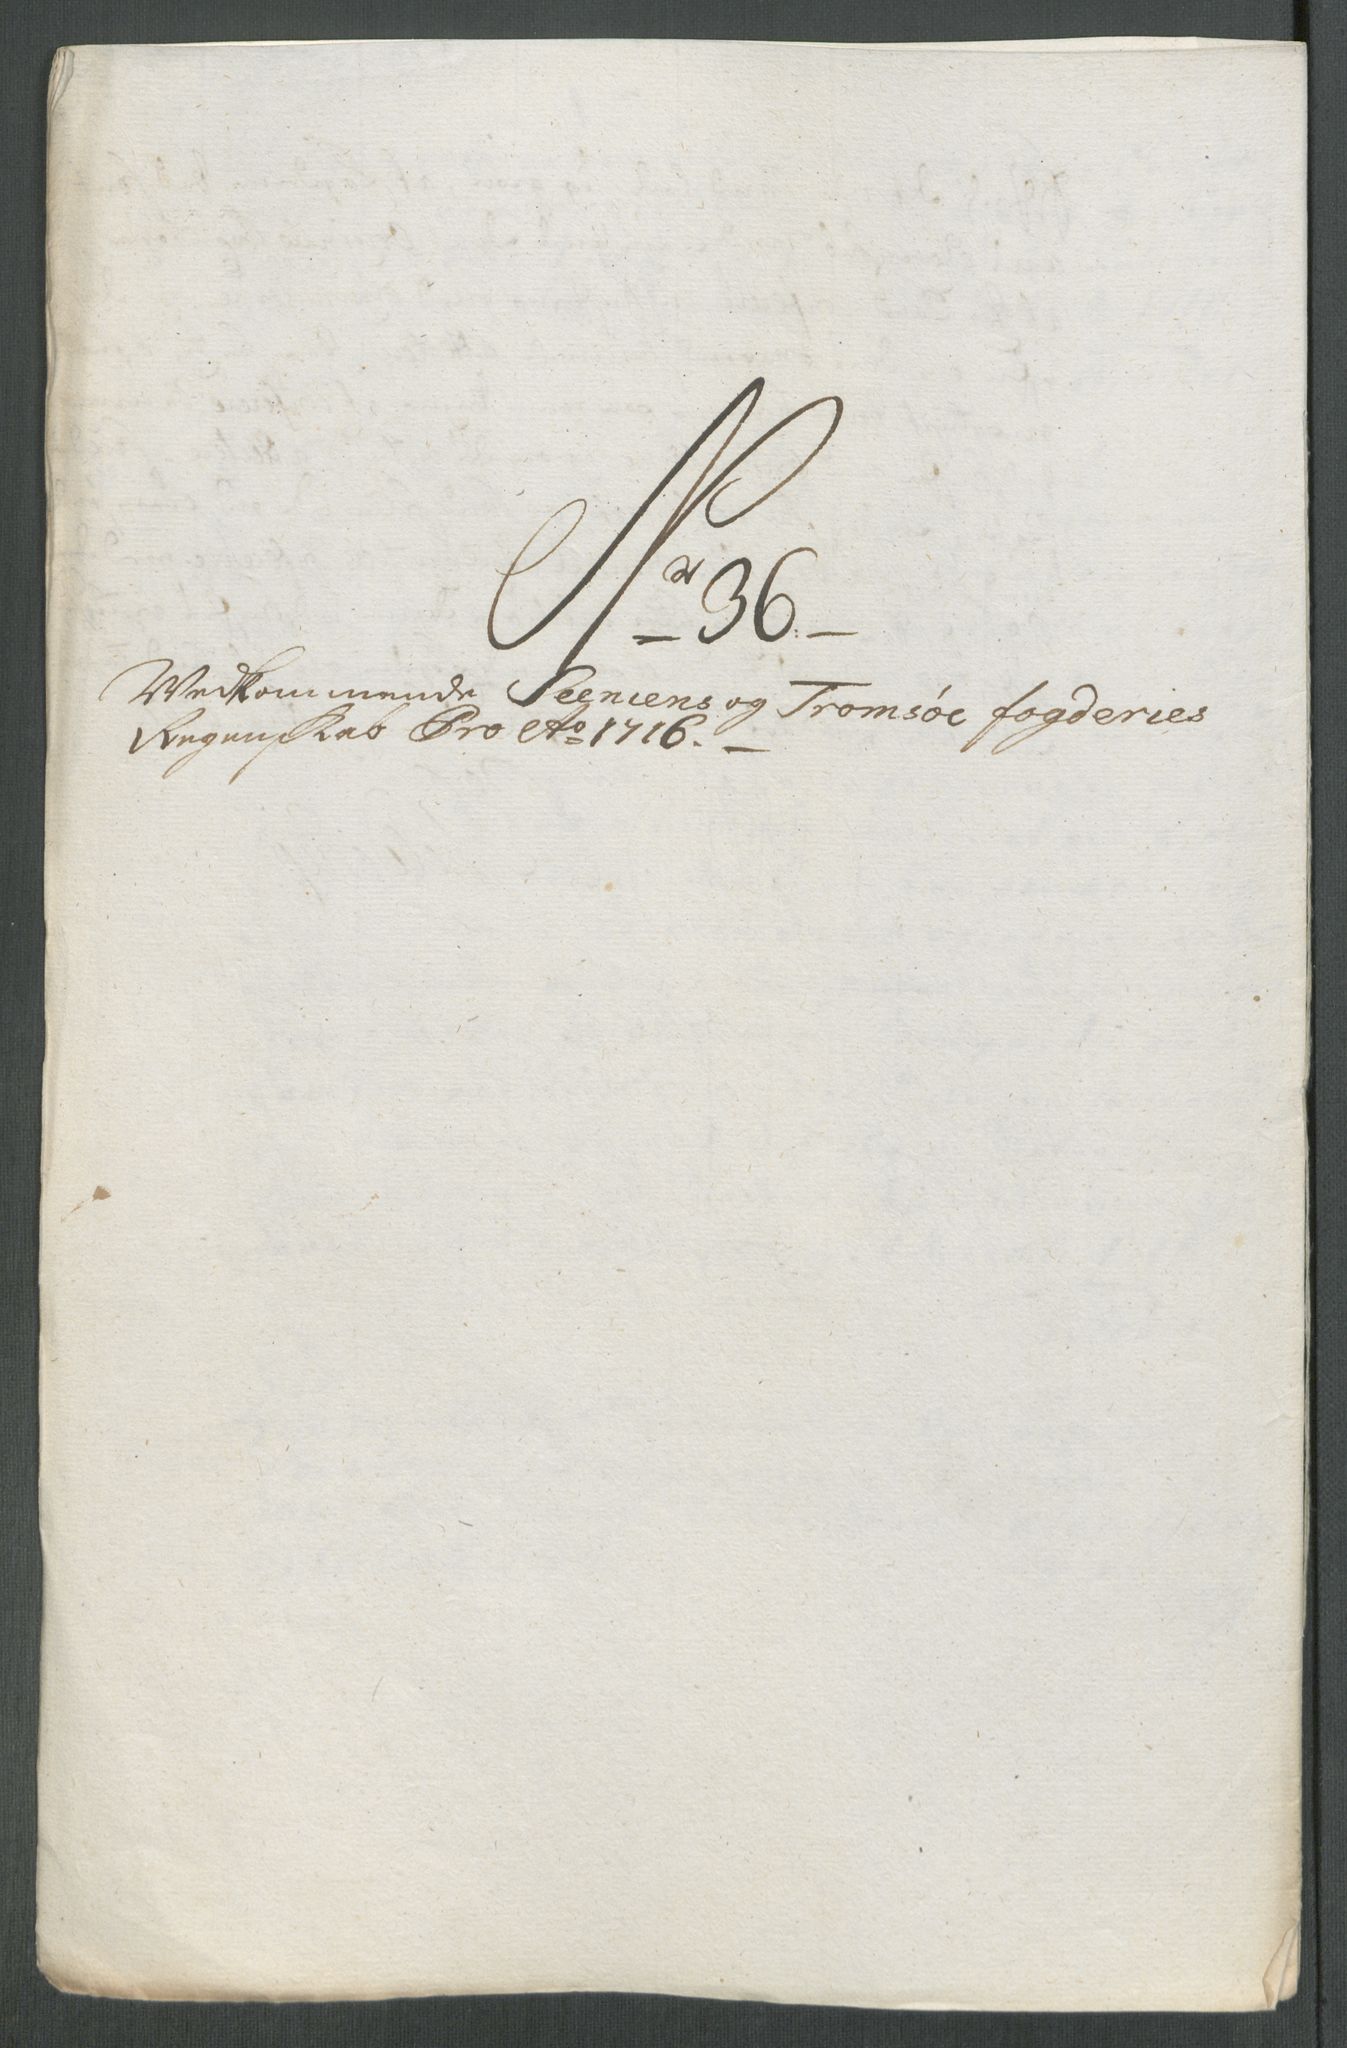 No 36.
Vedkommende Seeniens og Tromsøe fogderies
Regenskab Pro Ao 1716.